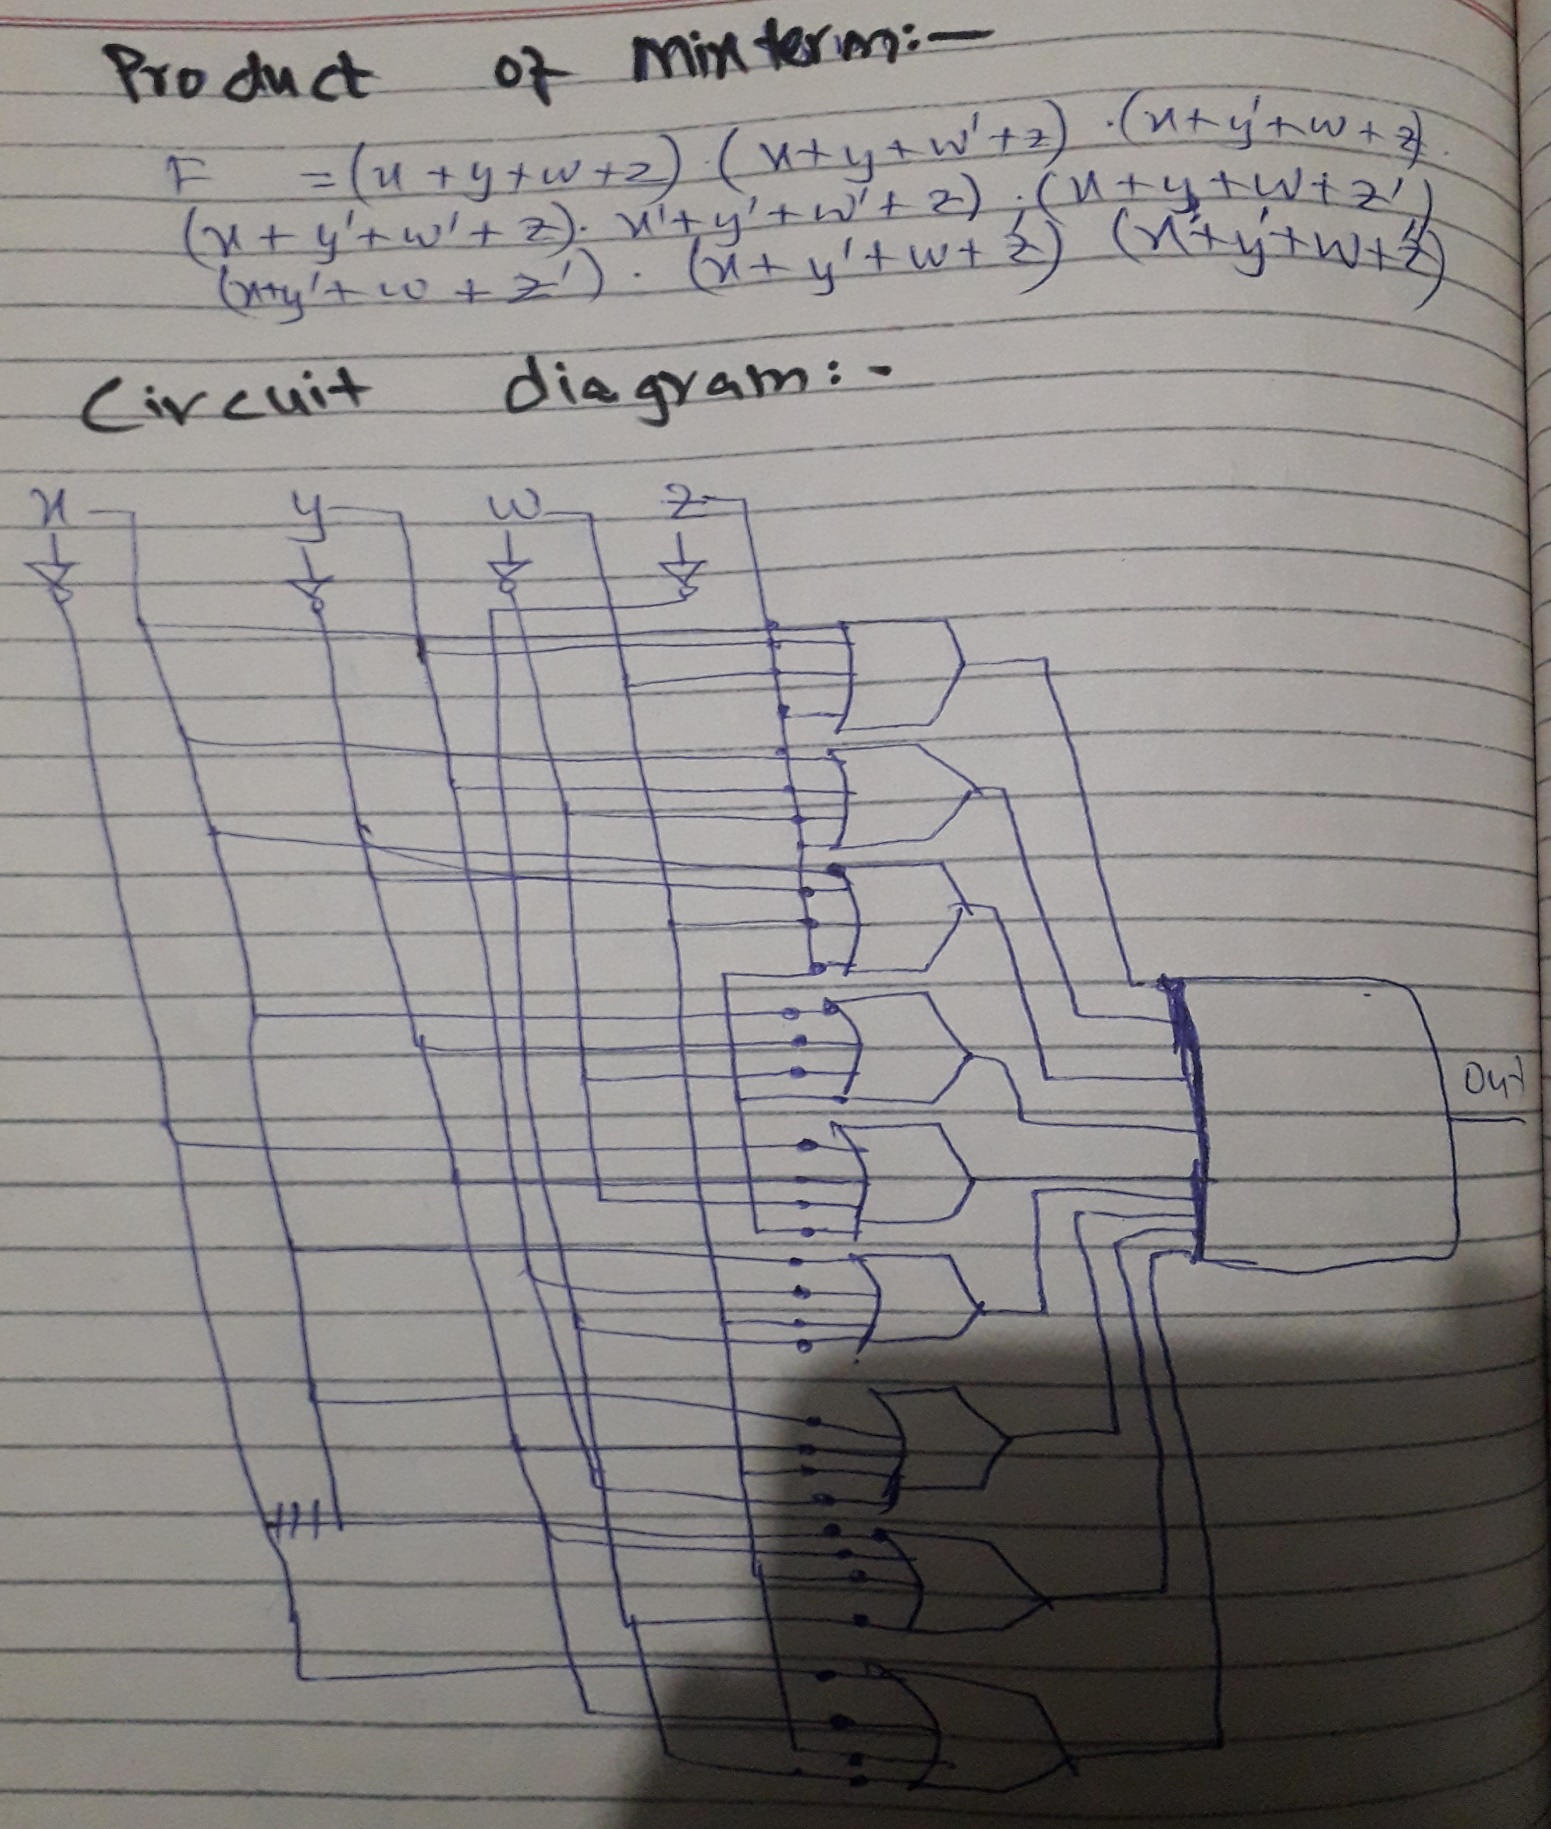 Product of Minterm:-
F = (x + y + w + z) . (x + y + w' + z) . (x + y' + w + z) .
(x + y' + w' + z) . x' + y' + w' + z) . (x + y + w + z')
(x+y' + w + z') . (x + y' + w + z') (x' + y' + w + z')
Circuit diagram:-
x y w z
Out